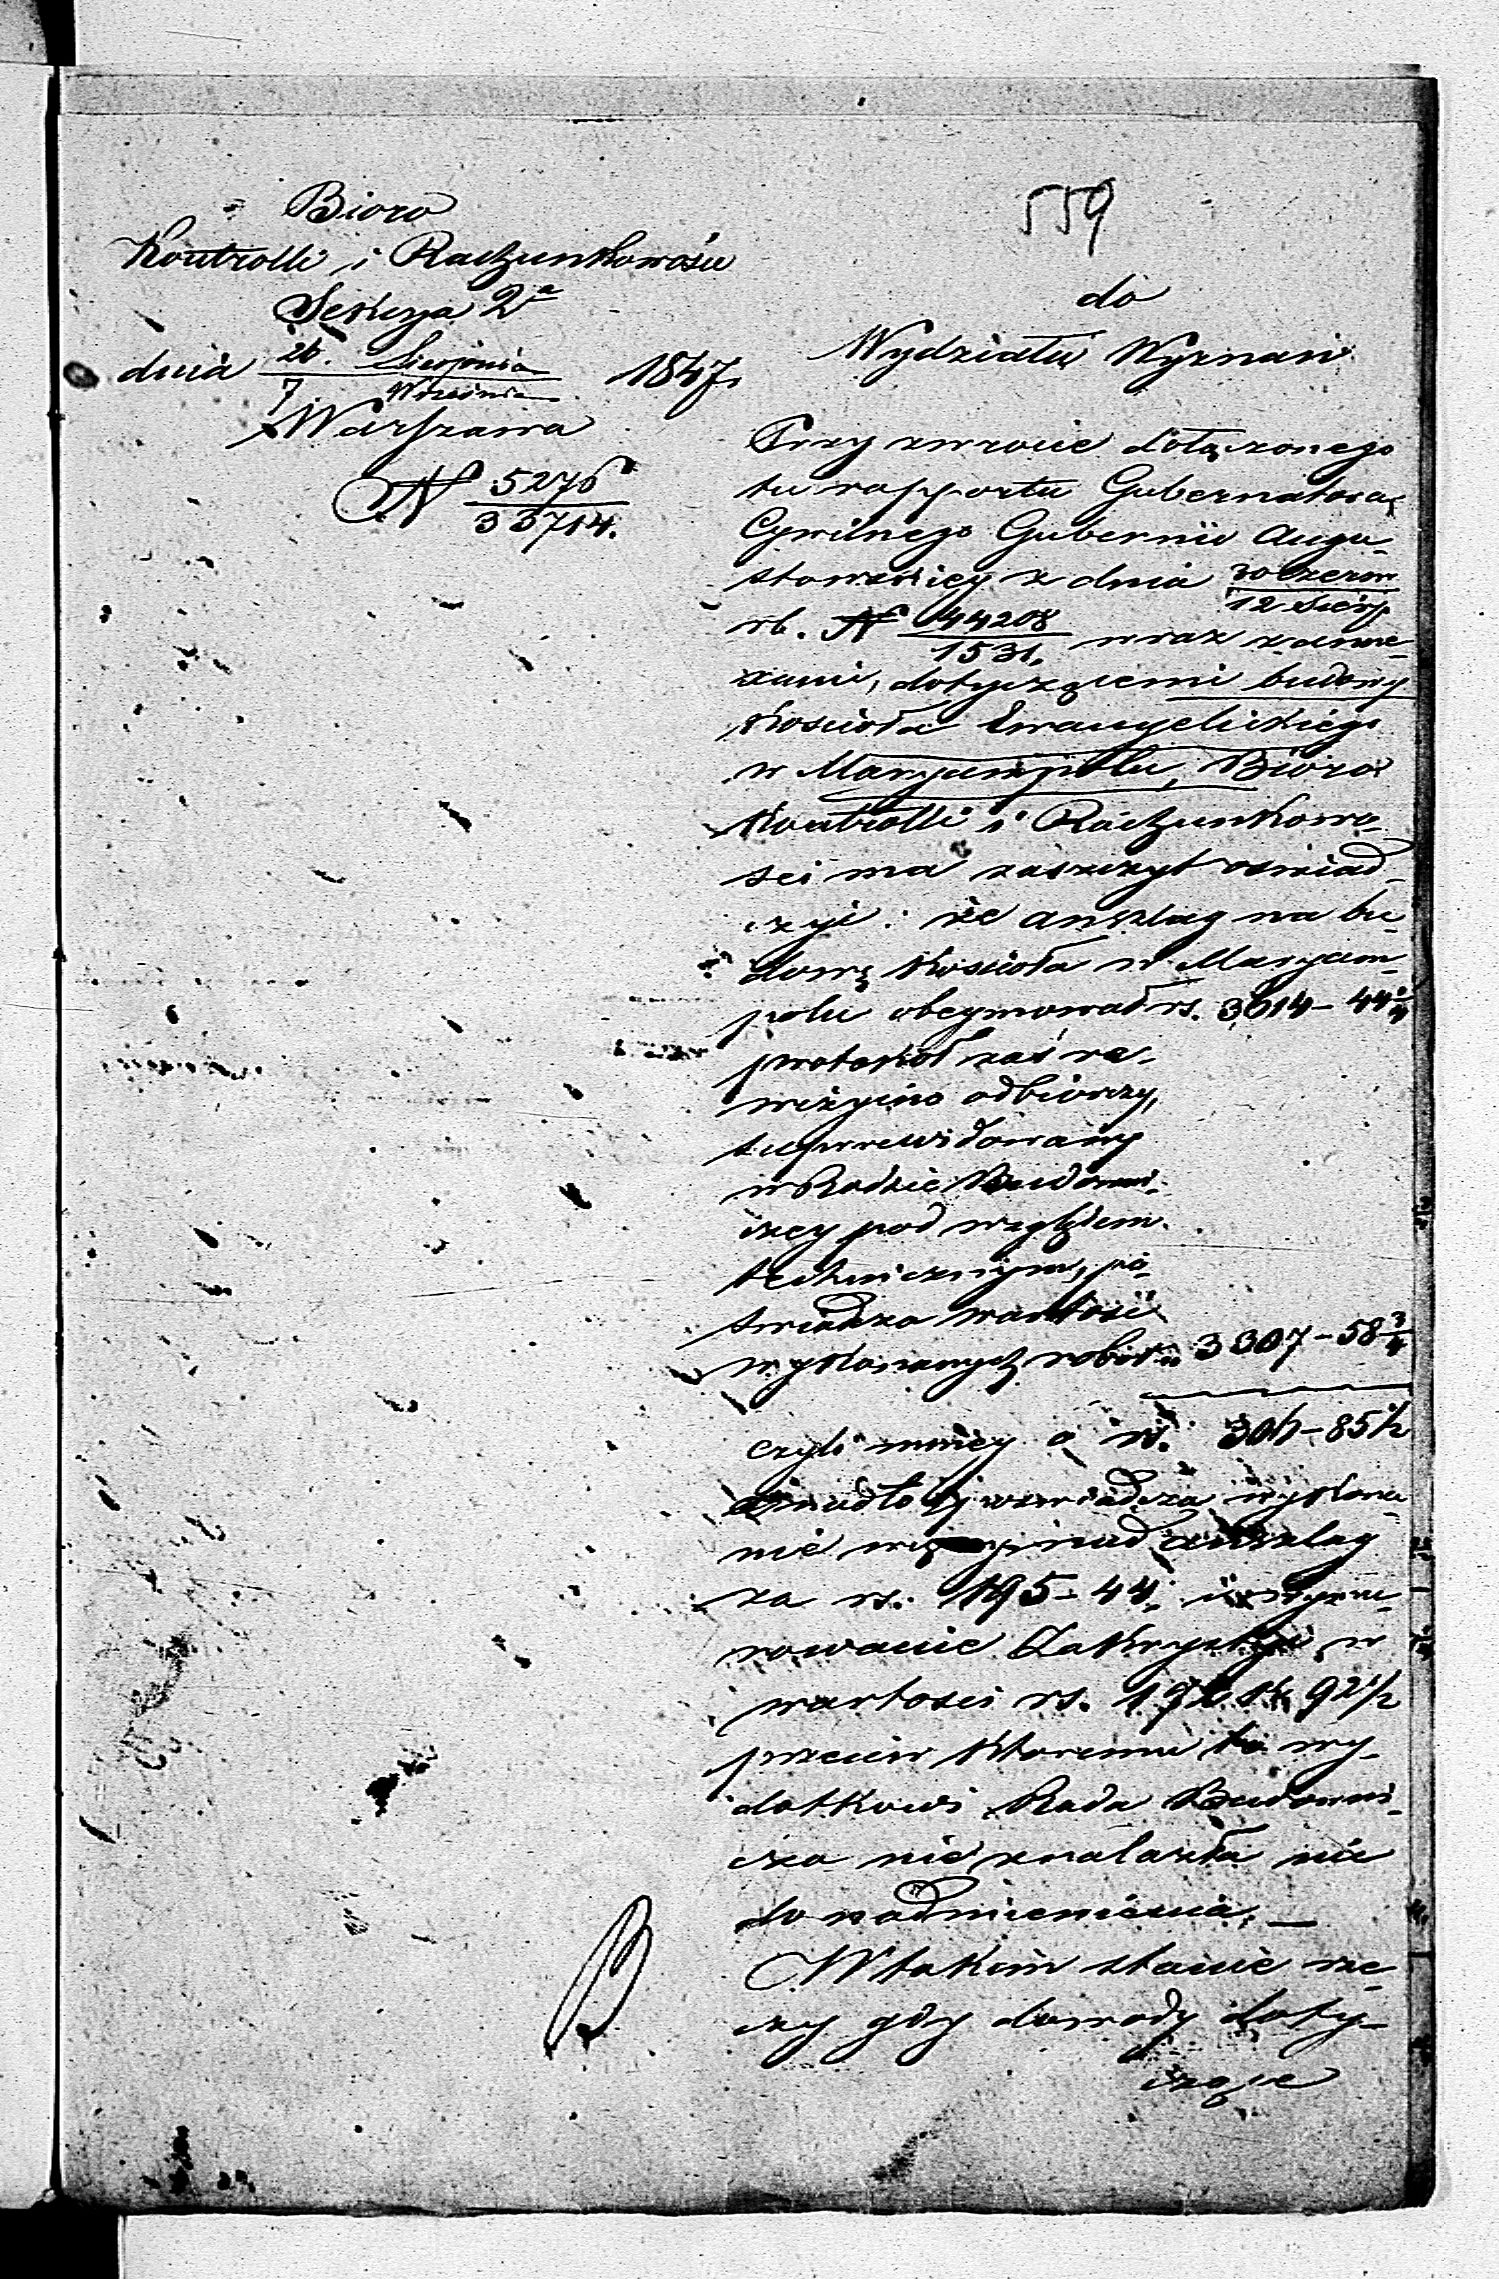 559
Bioro
Kontrolli i Rachunkowości
Sekcya 2a
dnia 26. Sierpnia / 7 Września 1847.
Warszawa
N 5276 / 33714.
do
Wydziału Wyznań
Przy zwrocie dołączonego
tu rapportu Gubernatora
Cywilnego Gubernii Augu-
stowskiey z dnia 30 czerw / 12 Sierp
rb. N 44208 / 1531, wraz z anne-
xami, dotyczącemi budowy
Kościoła Ewangelickiego
w Maryampolu, Bioro
Kontrolli i Rachunkowo-
ści ma zaszczyt oświad-
czyć: że anszlag na bu-
dowę Kościoła w Maryam-
polu obeymował rs. 3614 - 44 1/4
protokół zaś re-
wizyino odbiorczy,
superrewidowany
w Radzie Budowni-
czey pod względem
technicznym, po-
świadcza wartość
wykonanych robót " 3307 - 58 3/4
czyli mniey o rs. 306 - 85 1/2
a nadto poświadcza wykona-
nie więcey nad anszlag
za rs. 195 - 44; i wymu-
rowanie Zakrystyi w
wartości rs. 192 k. 92 1/2
przeciw któremu to wy-
datkowi Rada Budowni-
cza nie znalazła nic
do nadmienienia. —
W takim stanie rze-
czy gdy dowody doty-
czące